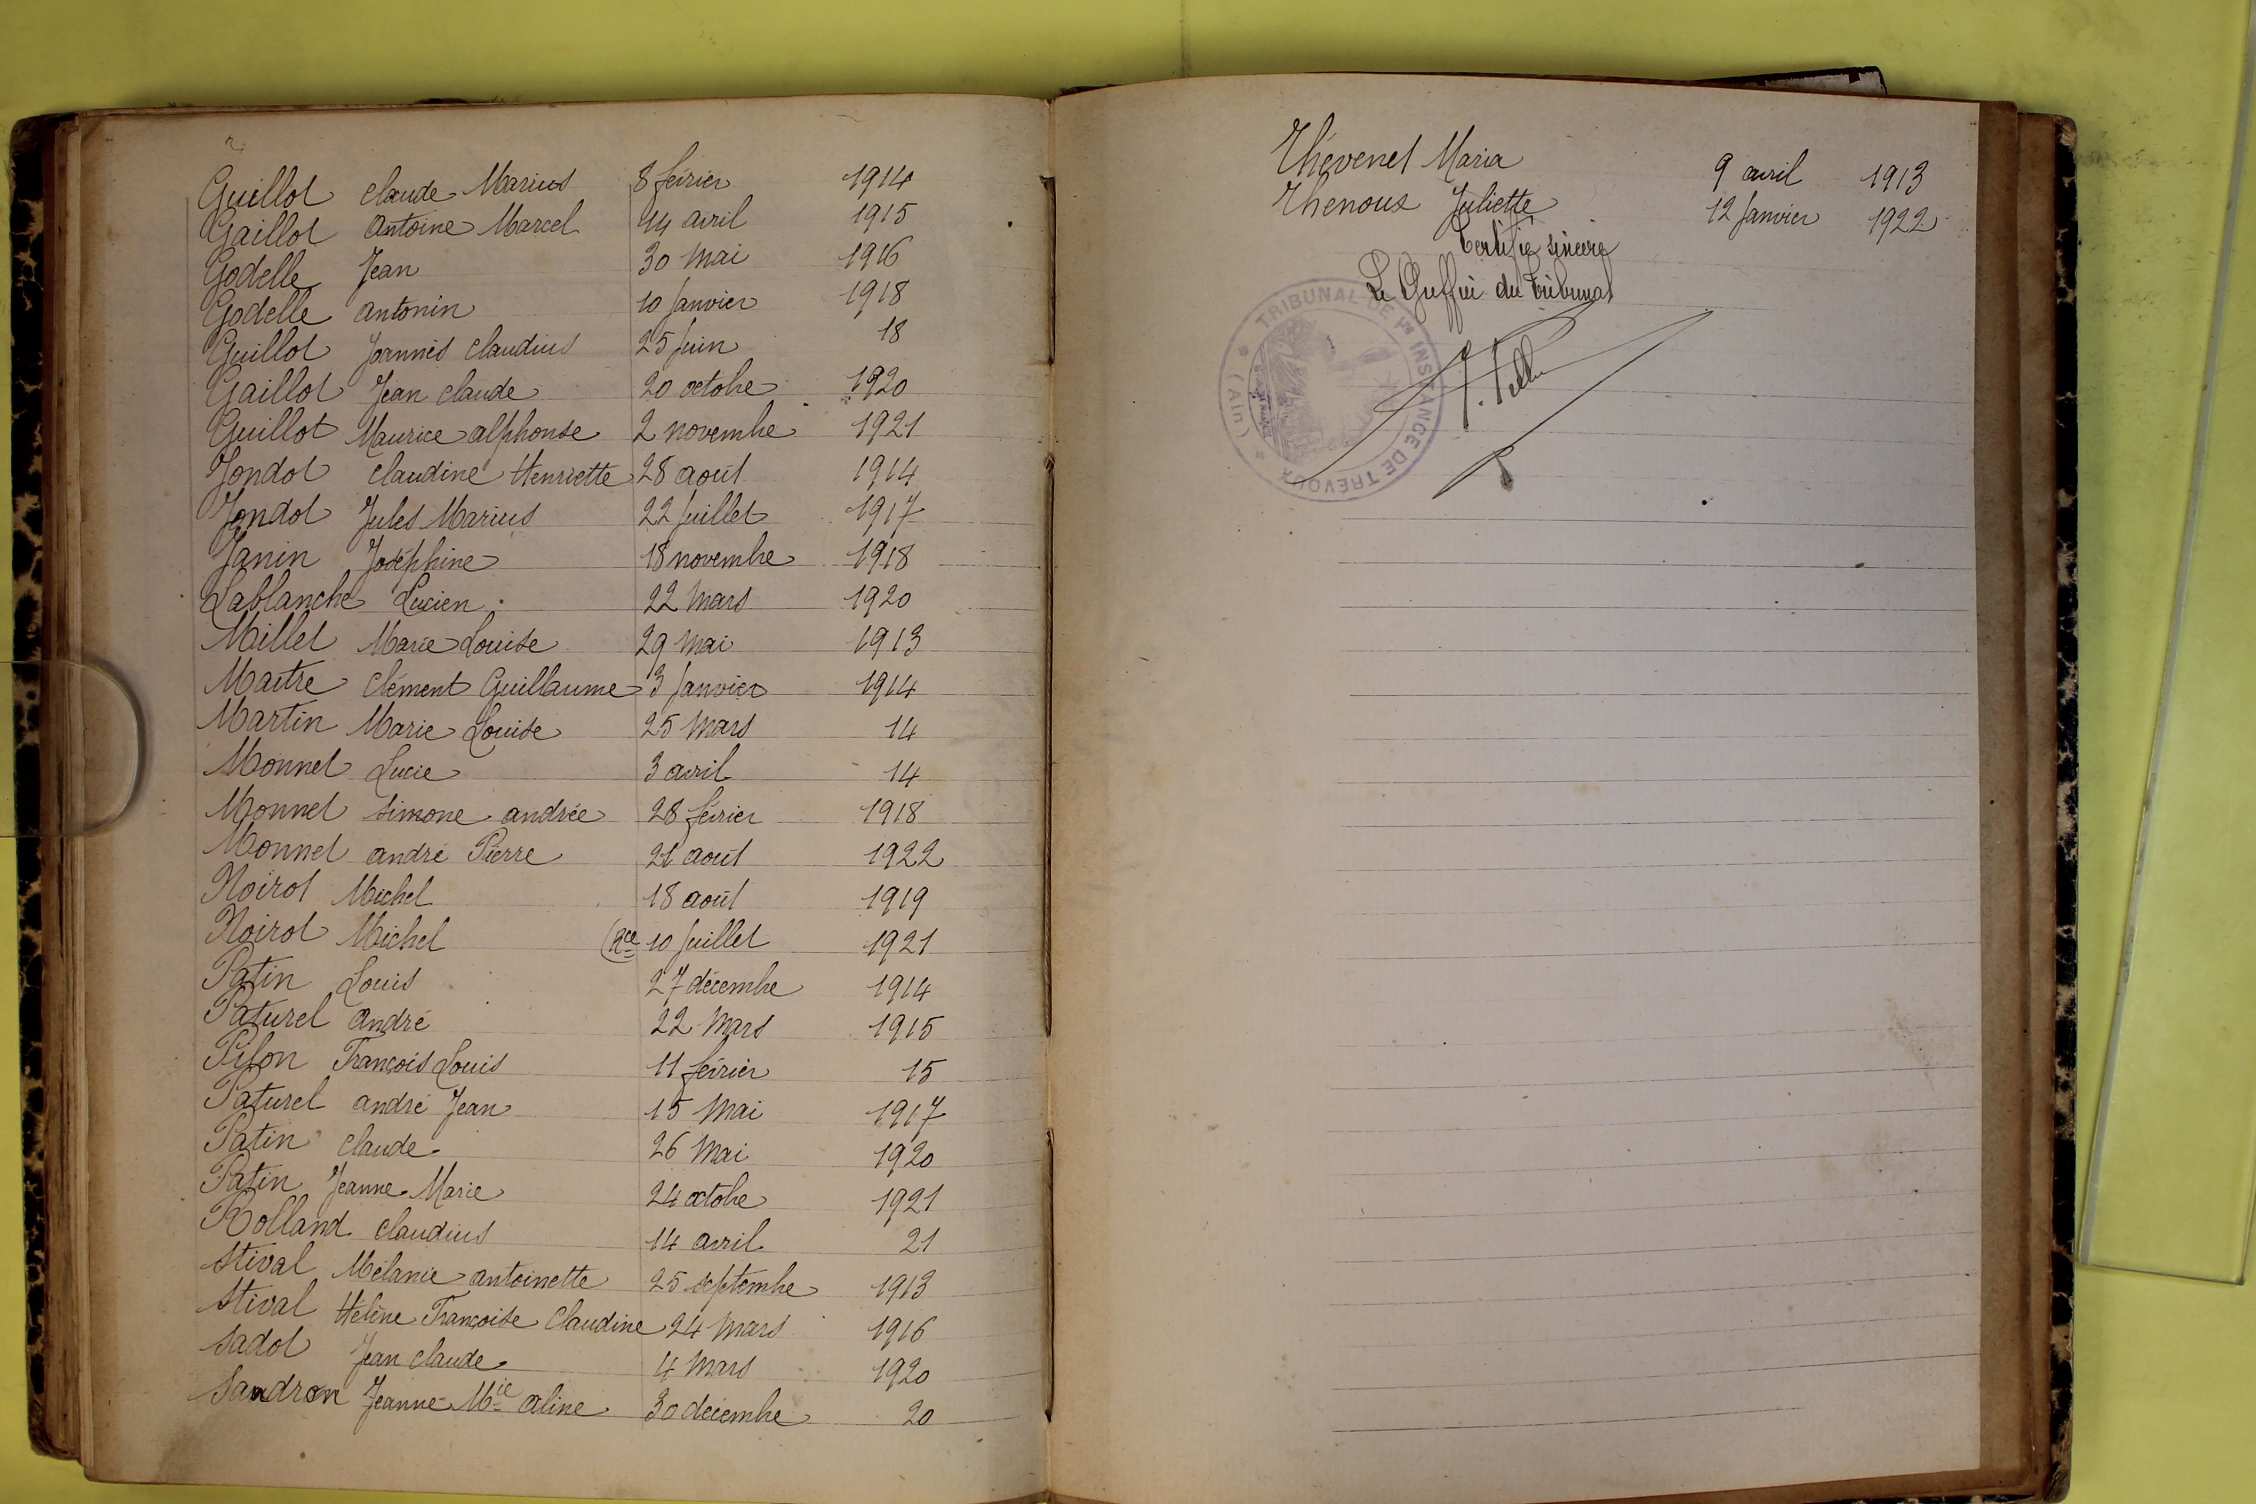 Guillot Claude Marius 8 février 1914
Gaillot Antoine Marcel 14 avril 1915
Godelle Jean 30 Mai 1916
Godelle Antonin 10 Janvier 1918
Guillot Joannès Claudius 25 Juin 18
Gaillot Jean Claude 20 octobre 1920
Guillot Maurice Alphonse 2 novembre 1921
Jondot Claudine Henriette 28 août 1914
Jondot Jules Marius 22 Juillet 1917
Janin Joséphine 18 novembre 1918
Lablanche Lucien 22 Mars 1920
Millet Marie Louise 29 Mai 1913
Maitre Clément Guillaume 3 Janvier 1914
Martin Marie Louise 25 Mars 14
Monnet Lucie 3 avril 14
Monnet Simone Andrée 28 février 1918
Monnet André Pierre 21 août 1922
Noirot Michel 18 août 1919
Noirot Michel (Rce 10 Juillet 1921
Patin Louis 27 décembre 1914
Paturel André 22 Mars 1915
Pilon François Louis 11 février 15
Paturel André Jean 15 Mai 1917
Patin Claude 26 Mai 1920
Patin Jeanne Marie 24 octobre 1921
Rolland Claudius 14 avril 21
Stival Mélanie Antoinette 25 septembre 1913
Stival Hélène Françoise Claudine 24 Mars 1916
Sadot Jean Claude 4 Mars 1920
Sandron Jeanne Mie Aline 30 décembre 20
Thévenet Maria 9 avril 1913
Thenoux Juliette 12 Janvier 1922
Certifié sincère
Le Greffier du Tribunal
TRIBUNAL DE 1re INSTANCE DE TREVOUX
(Ain)